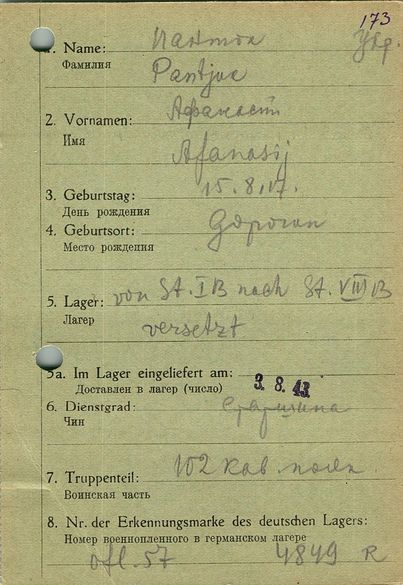 173
1. Name: Пантюк Укр.
Фамилия
Pantjuk
2. Vornamen: Афанасий
Имя
Afanasij
3. Geburtstag: 15.8.17.
День рождения
4. Geburtsort:
Место рождения
5. Lager: von St. IB nach St. VIII B
Лагер
versetzt
5a. Im Lager eingeliefert am: 3. 8. 43
Доставлен в лагер (число)
6. Dienstgrad: Старшина
Чин
7. Truppenteil: 102 кав. полк
Воинская часть
8. Nr. der Erkennungsmarke des deutschen Lagers:
Номер военнопленного в германском лагере
ofl. 57 4849 R